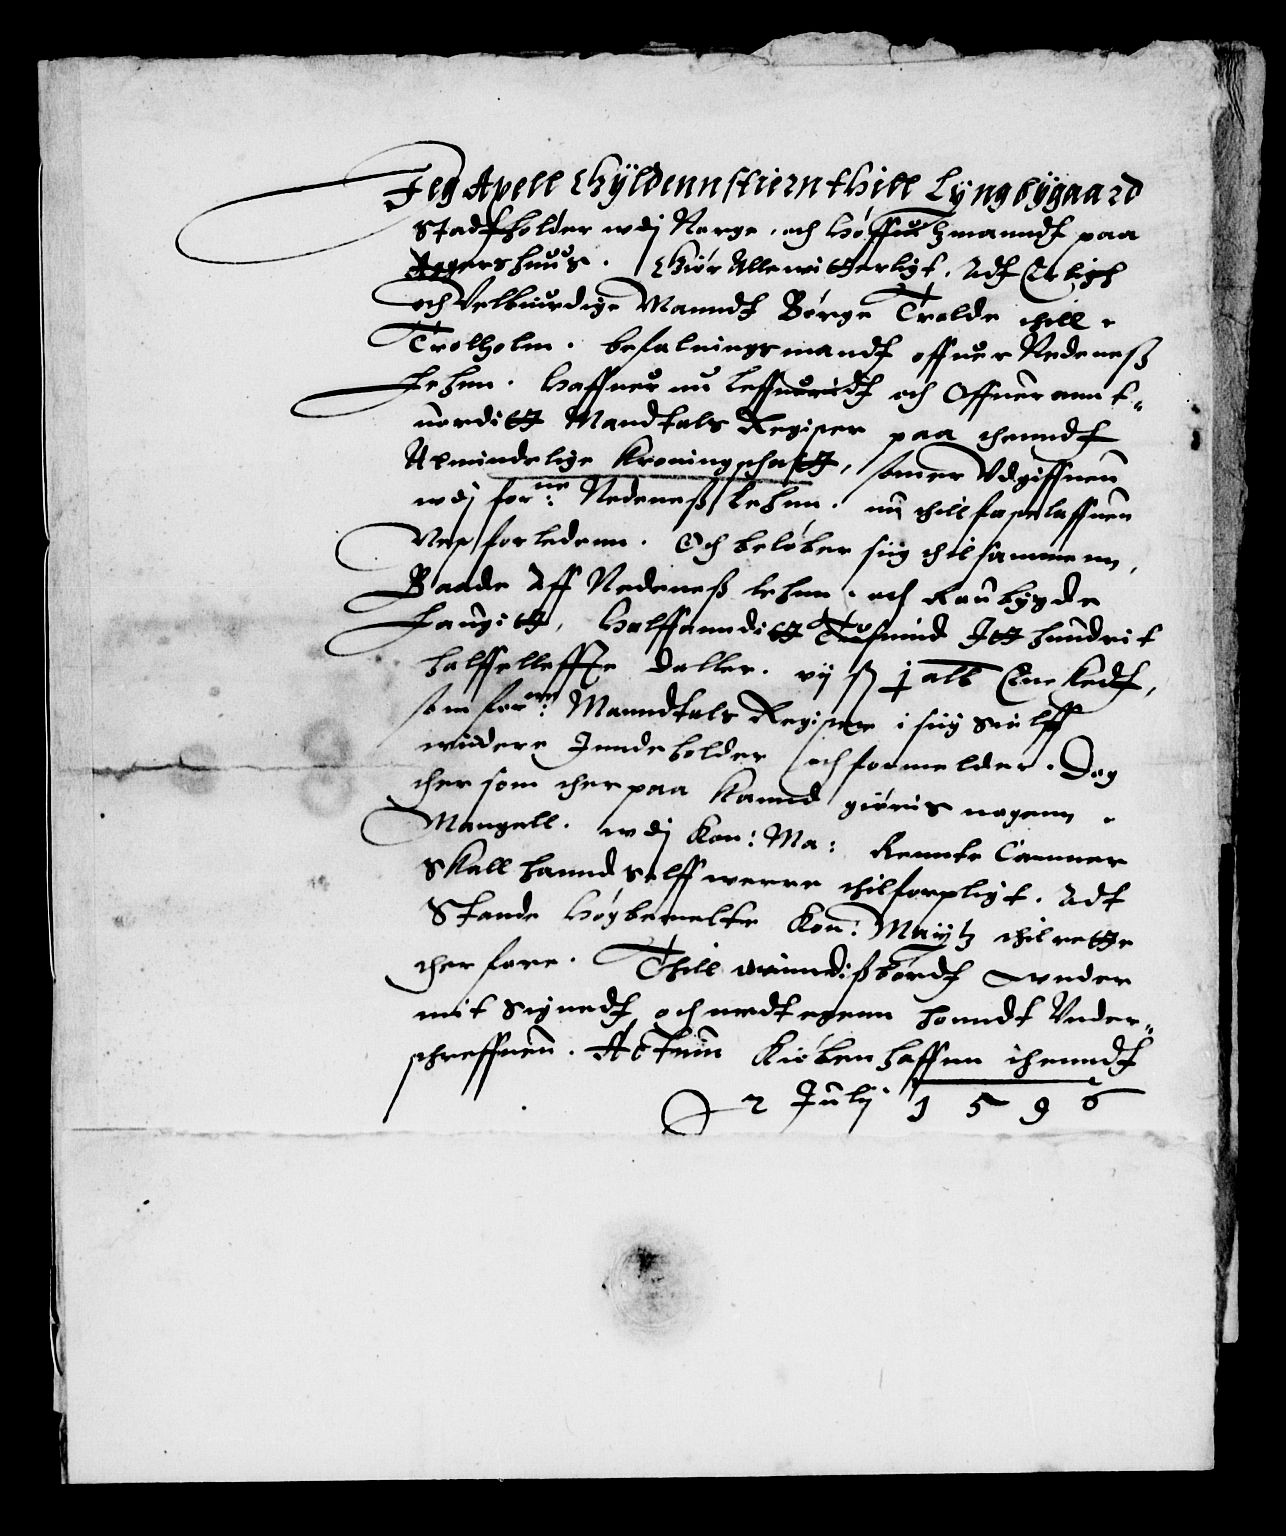 Jeg Axell Gyldennstiern thill Lyngbygaard
Stadtholder wdj Norge, och Høffuitzmanndt paa
Aggershuus. Giør Alleuitterligt, Adt Erligh
och Velbiurdige Manndt Børge Trolde thill
Trolholm. befalningsmandt offuer Nedeness
Lehen. Haffuer nu leffueridt och Offuerannt-
uordit Mandtals Register paa thenndt
Almindelige Kroningschatt, somer Udgiffuen
wdj forne: Nedeness Lehen. nu thill fastelaffuen
Nest forledenn. Och beløber siig thilsammenn,
Baade Aff Nedeness lehen. och Raubygde
Laugitt, Halffanndit Tusind Itt hundrit
halffelleffte Daller. vij ß j alb Enckedt,
som forne: Manndtals Register i siig sielff
widere Inndeholder och formelder. Dog
ther som ther paa Kannd giøris nogenn
Mangell. wdj Kon: Ma: Rennte Cammer
Skall hannd selff werre thilforpligt. Adt
Stande Høgbemelte Kon: Maytz thilrette
ther fore. Thill winndissbørdt Wnder
mit Signedt och medt egenn hanndt Under-
schreffuen. Actum Kiøbenhaffuen thenndt
2 Julij 1596